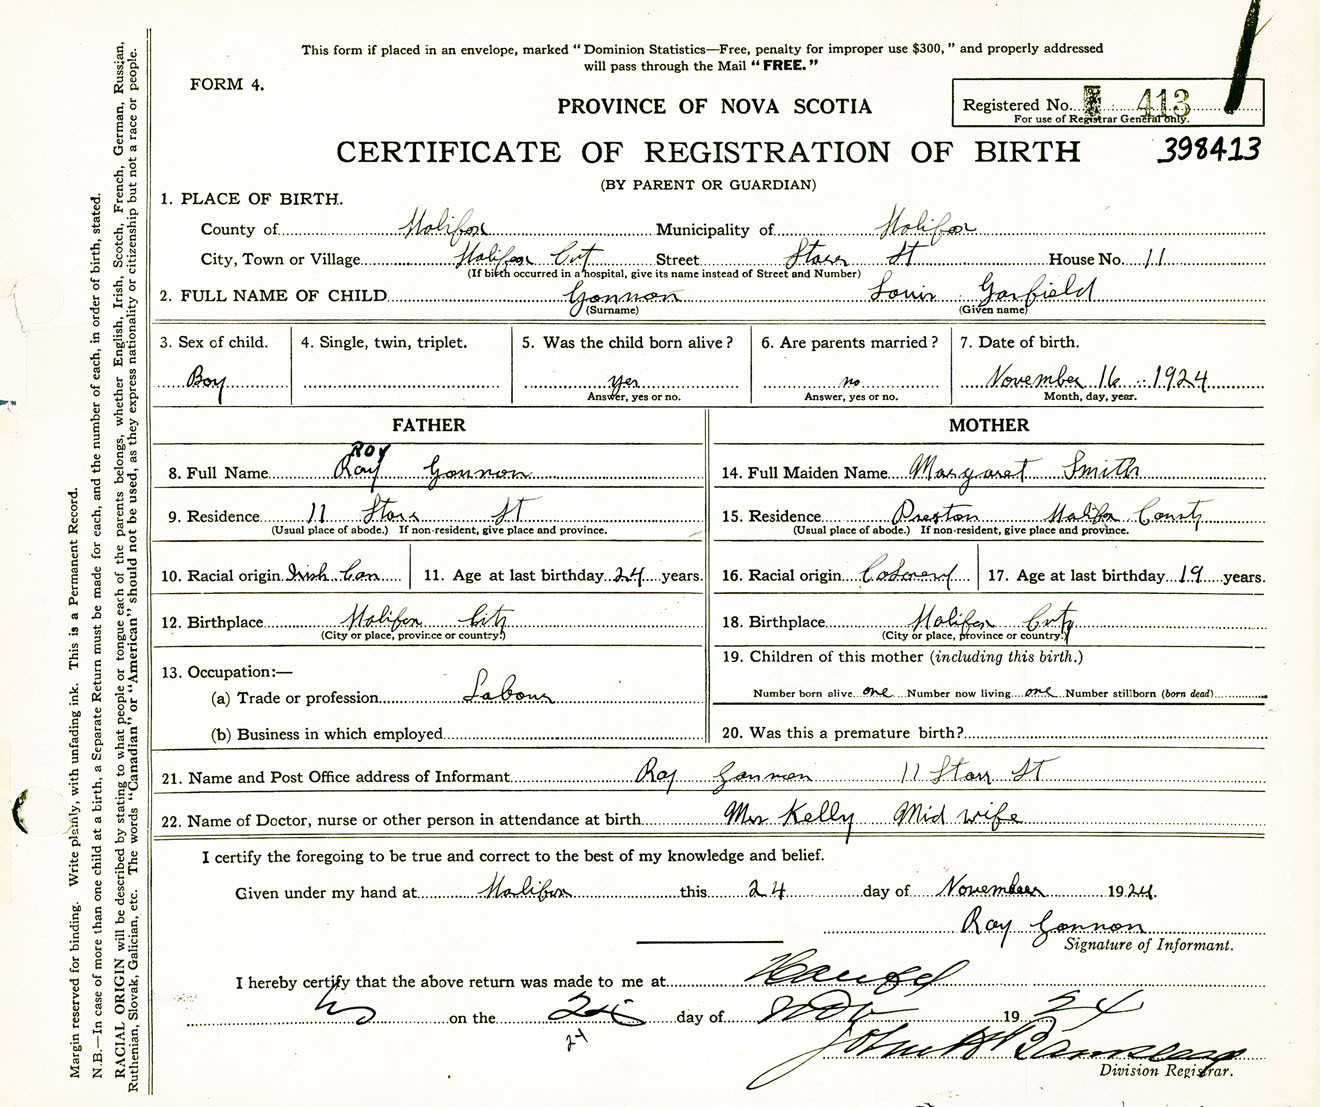 This form if placed in an envelope, marked "Dominion Statistics—Free, penalty for improper use $300," and properly addressed
will pass through the Mail "FREE."
FORM 4.
PROVINCE OF NOVA SCOTIA
Registered No. 413
For use of Registrar General only.
CERTIFICATE OF REGISTRATION OF BIRTH
398413
(BY PARENT OR GUARDIAN)
1. PLACE OF BIRTH.
County of Halifax Municipality of Halifax
City, Town or Village Halifax City Street Starr St House No. 11
(If birth occurred in a hospital, give its name instead of Street and Number)
2. FULL NAME OF CHILD Gannon Louis Garfield
(Surname) (Given name)
3. Sex of child. 4. Single, twin, triplet. 5. Was the child born alive? 6. Are parents married? 7. Date of birth.
Boy yes no November 16 1924
Answer, yes or no. Answer, yes or no. Month, day, year.
FATHER MOTHER
ROY
8. Full Name Ray Gannon 14. Full Maiden Name Margaret Smith
9. Residence 11 Starr St 15. Residence Preston Halifax County
(Usual place of abode.) If non-resident, give place and province. (Usual place of abode.) If non-resident, give place and province.
10. Racial origin Irish Can 11. Age at last birthday 24 years. 16. Racial origin Colored 17. Age at last birthday 19 years.
12. Birthplace Halifax City 18. Birthplace Halifax City
(City or place, province or country.) (City or place, province or country.)
13. Occupation:— 19. Children of this mother (including this birth.)
(a) Trade or profession Labour Number born alive one Number now living one Number stillborn (born dead)
(b) Business in which employed 20. Was this a premature birth?
21. Name and Post Office address of Informant Ray Gannon 11 Starr St
22. Name of Doctor, nurse or other person in attendance at birth Mrs Kelly Mid wife
I certify the foregoing to be true and correct to the best of my knowledge and belief.
Given under my hand at Halifax this 24 day of November 1924.
Ray Gannon
Signature of Informant.
I hereby certify that the above return was made to me at
on the day of Nov 19 24
24
John
Division Registrar.
Margin reserved for binding. Write plainly, with unfading ink. This is a Permanent Record.
N.B.—In case of more than one child at a birth, a Separate Return must be made for each, and the number of each, in order of birth, stated.
RACIAL ORIGIN will be described by stating to what people or tongue each of the parents belongs, whether English, Irish, Scotch, French, German, Russian,
Ruthenian, Slovak, Galician, etc. The words "Canadian" or "American" should not be used, as they express nationality or citizenship but not a race or people.